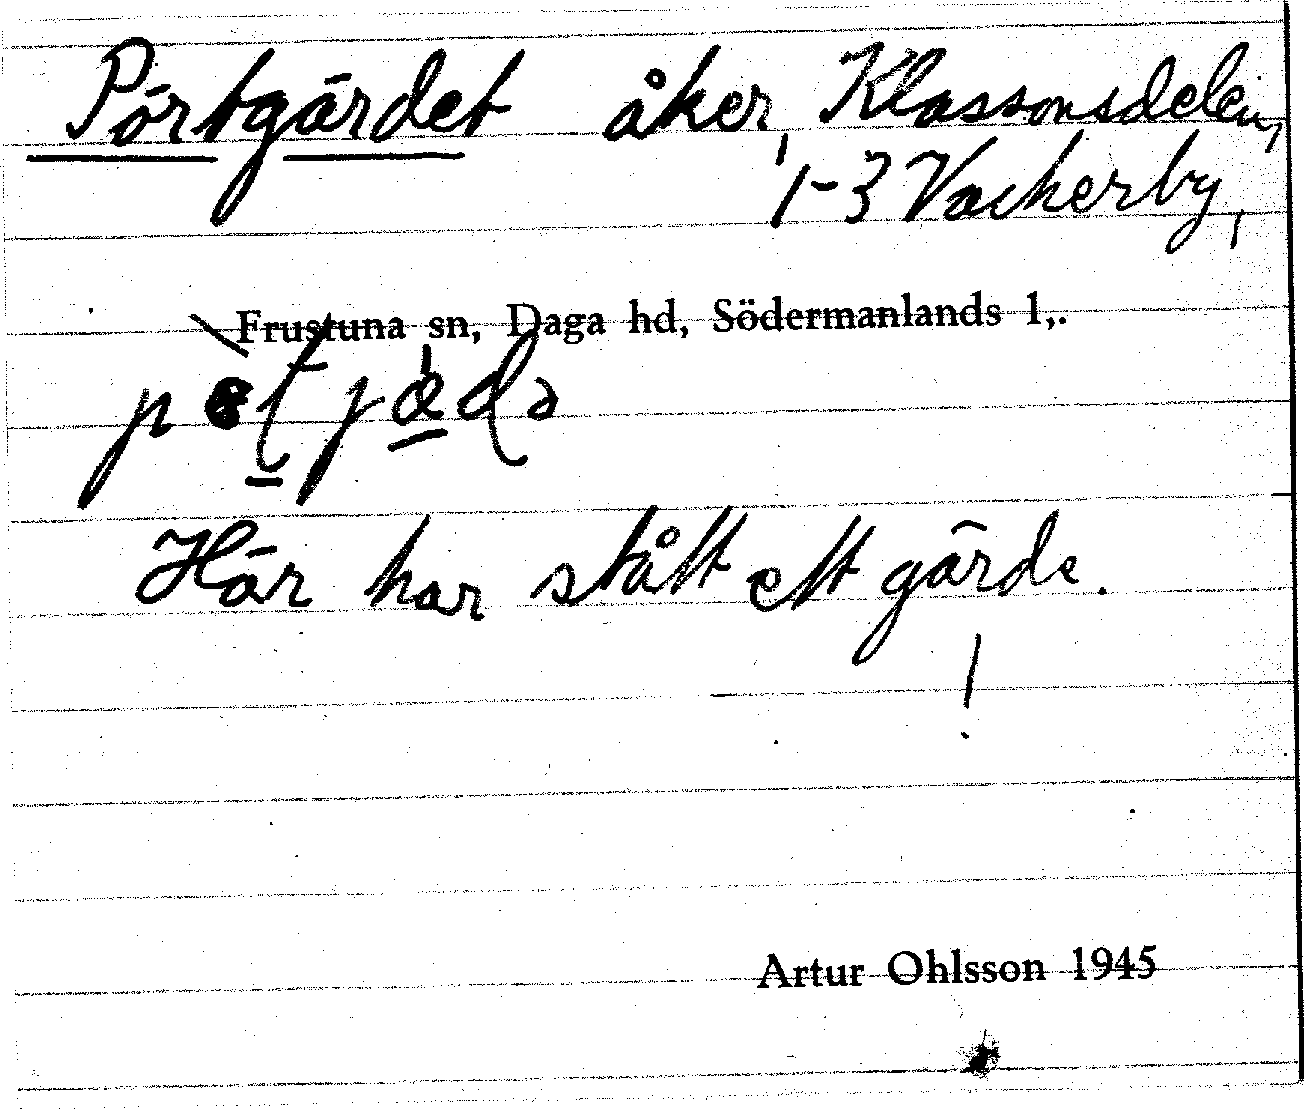 Pörtgärdet åker, Klassonsdelen,
1-3 Vackerby,
Frustuna sn, Daga hd, Södermanlands l,.
Här har stått ett gärde.
!
Artur Ohlsson 1945